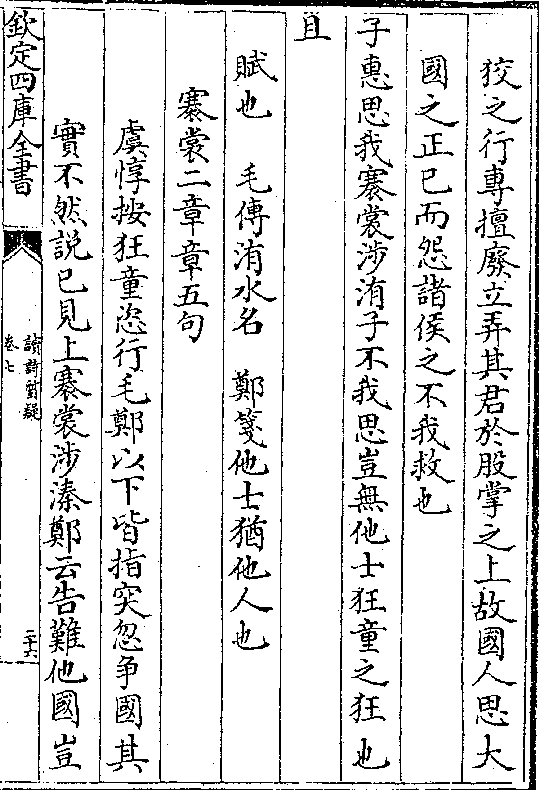 狡之行專擅廢立弄其君於股掌之上故國人思大
國之正已而怨諸侯之不我救也
子惠思我褰裳涉洧子不我思豈無他士狂童之狂也
且
賦也　毛傳洧水名　鄭箋他士猶他人也
褰裳二章章五句
虞惇按狂童恣行毛鄭以下皆指突忽爭國其
實不然説已見上褰裳涉溱鄭云告難他國豈
欽定四庫全書
讀詩質疑
卷七
二十六